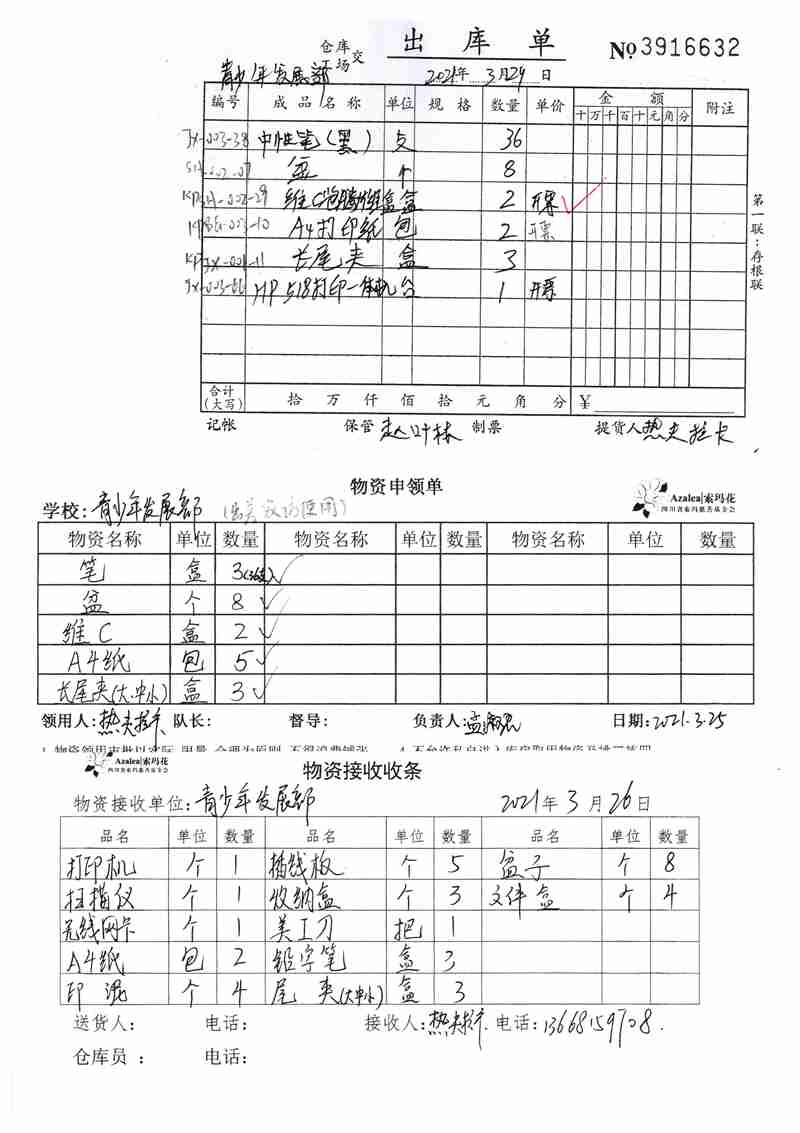 出 库 单
仓库
场 交
No 3916632
青少年发展部 2021年 3月29日
编号 成品名称 单位 规格 数量 单价 金 额 附注
十 万 千 百 十 元 角 分
JX-003-38 中性笔(黑) 支 36
盆 个 8
维C 盒 2 开票
A4打印纸 包 2 开票
长尾夹 盒 3
HP 518打印一体机 台 1 开票
第一联:存根联
合计
(大写) 拾 万 仟 佰 拾 元 角 分 ¥
记帐 保管 赵叶林 制票 提货人 热夫拉卡
物资申领单
Azalea|索玛花
四川省索玛慈善基金会
学校: 青少年发展部
物资名称 单位 数量 物资名称 单位 数量 物资名称 单位 数量
笔 盒 3(36支)
盆 个 8
维C 盒 2
A4纸 包 5
长尾夹(大.中.小) 盒 3
领用人: 队长: 督导: 负责人: 日期: 2021.3.25
Azalea|索玛花
四川省索玛慈善基金会
物资接收收条
物资接收单位: 青少年发展部 2021年3月26日
品名 单位 数量 品名 单位 数量 品名 单位 数量
打印机 个 1 插线板 个 5 盆子 个 8
扫描仪 个 1 收纳盒 个 3 文件盒 个 4
无线网卡 个 1 美工刀 把 1
A4纸 包 2 铅字笔 盒 3
印 混 个 4 尾 夹(大中小) 盒 3
送货人: 电话: 接收人: 电话: 13668159708.
仓库员 : 电话: